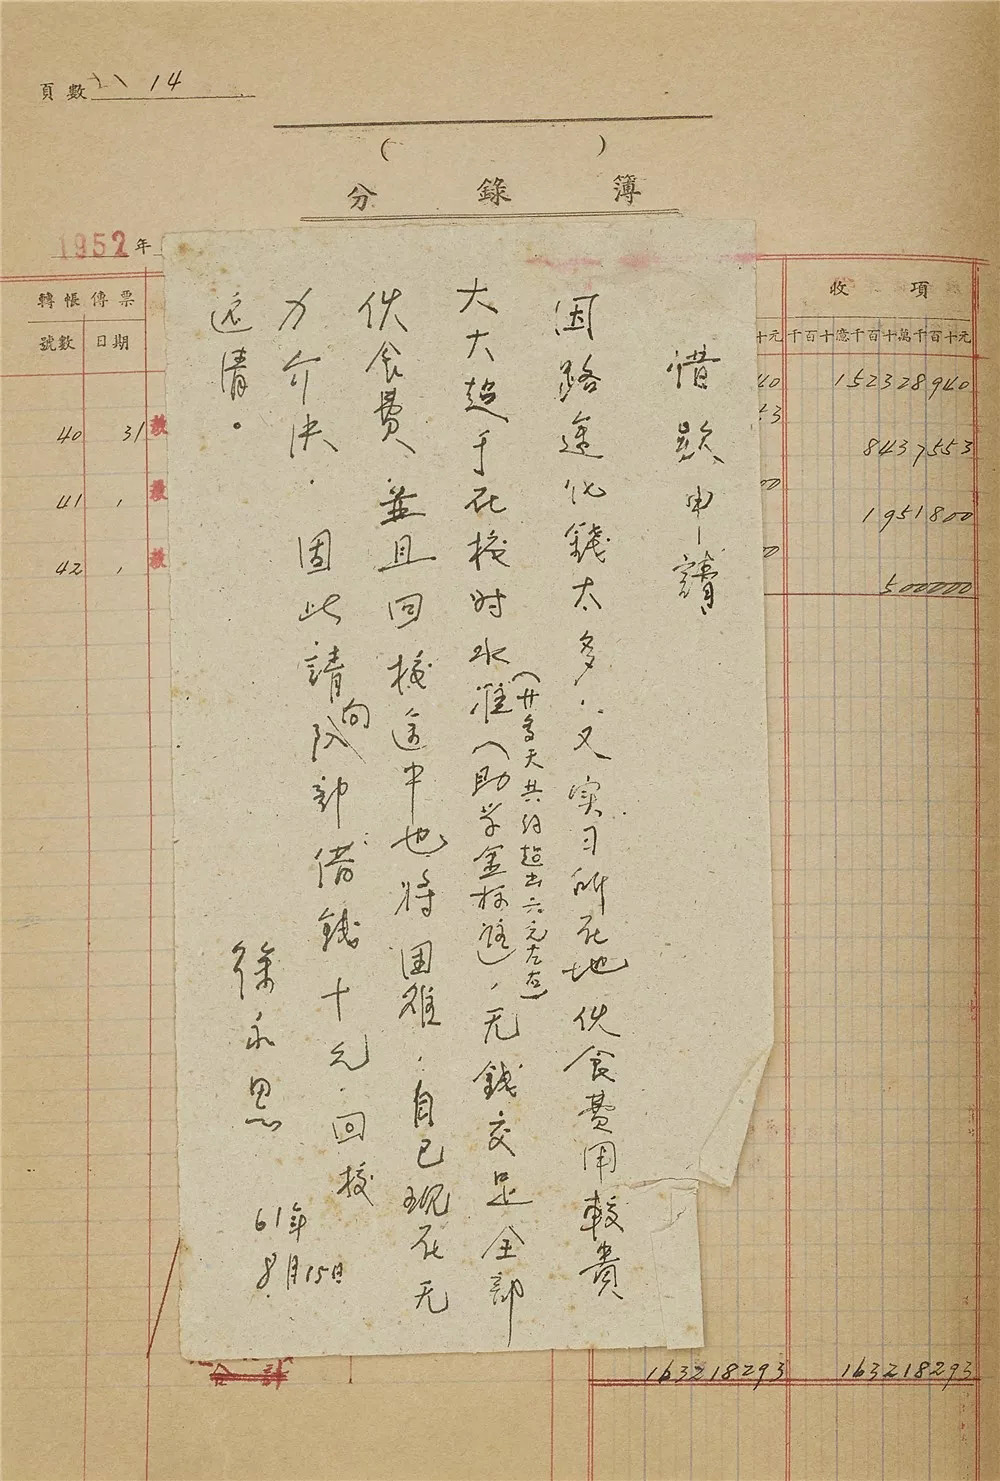 頁數 14
( )
分錄簿
1952年
轉帳傳票
號數 日期
收項
千百十億千百十萬千百十元
十元
40 31
41
42
40
43
00
152328940
8437553
1951800
500000
借款申請
因路途化錢太多，又实习所在地伙食費用較貴
（廿多天共约超出六元左右）
大大超于在校时水准（助学金标准），无錢交足全部
伙食費，並且回校途中也将困难，自己現在无
力介决．固此請向队部借錢十元．回校
还清。
徐永恩
61年
8月15日
合計
163218293
163218293